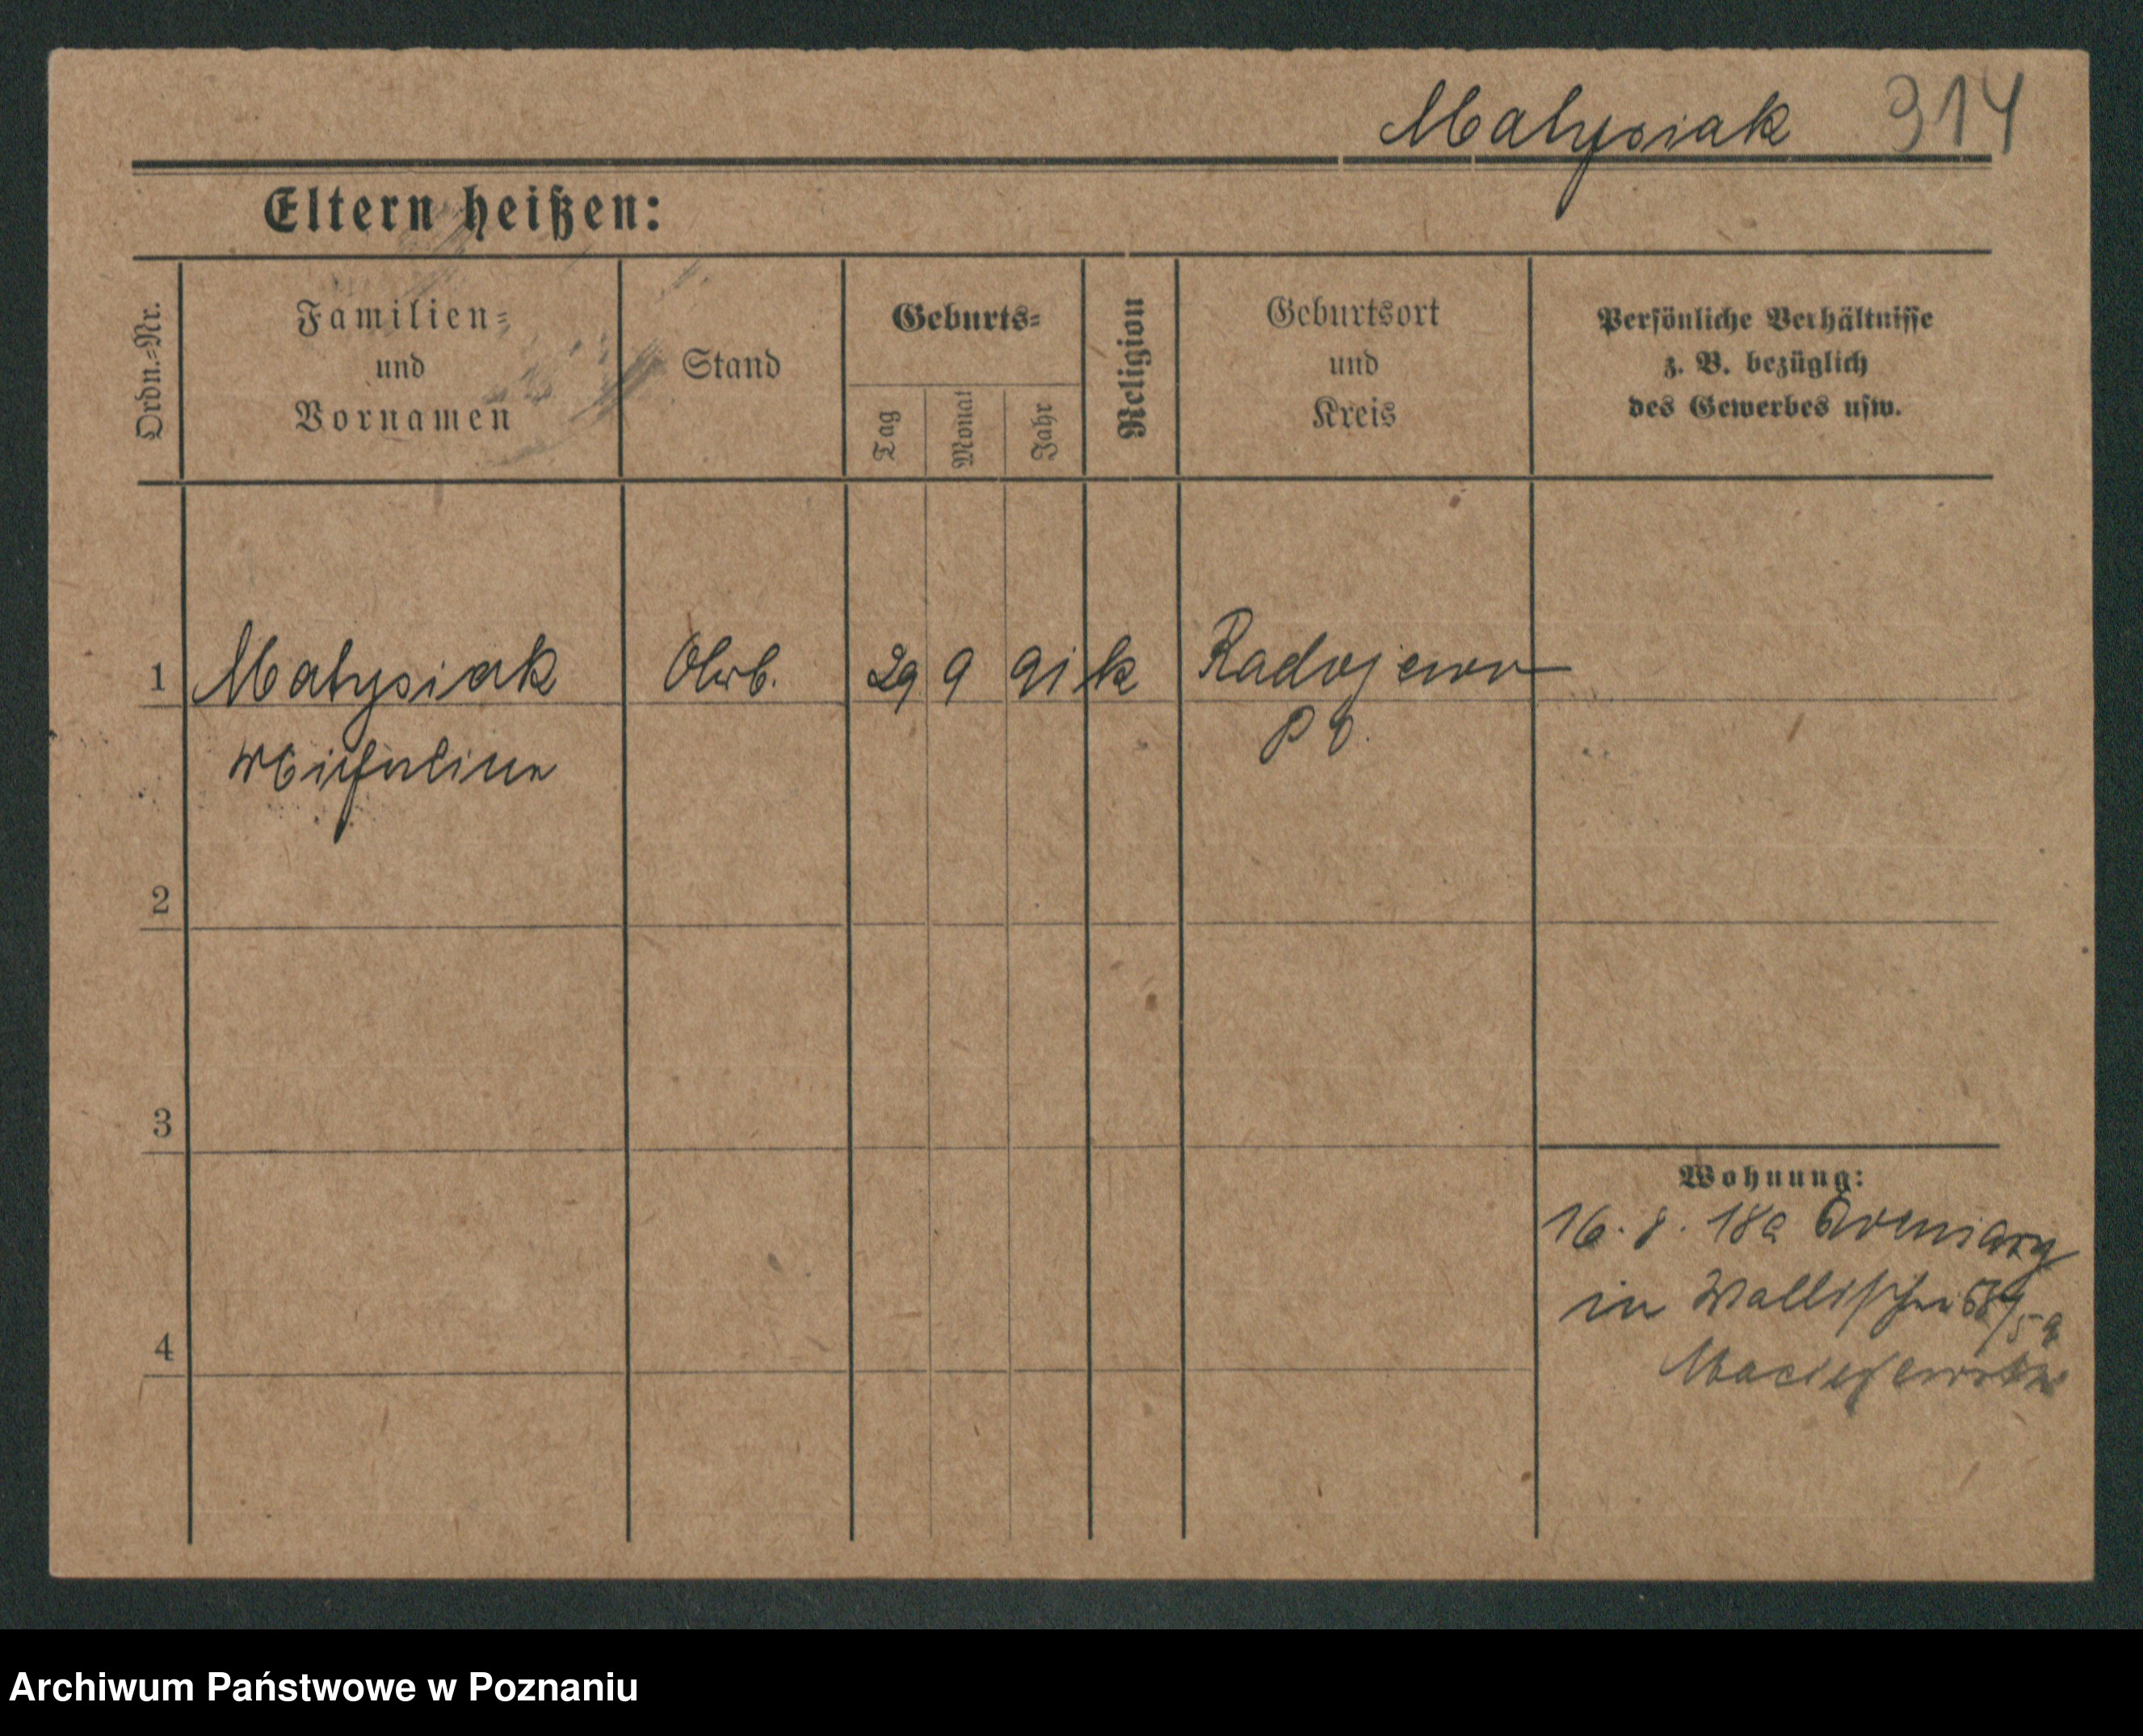 Matysiak 314
Eltern heißen:
Ordn.-Nr.
Familien-
und
Vornamen
Stand
Geburts-
Tag
Monat
Jahr
Religion
Geburtsort
und
Kreis
Persönliche Verhältnisse
z. B. bezüglich
des Gewerbes usw.
1 Matysiak 29 9 91 k Radojewo
2
3
Wohnung:
16. 8. 18
in Wallischei
4
Archiwum Państwowe w Poznaniu